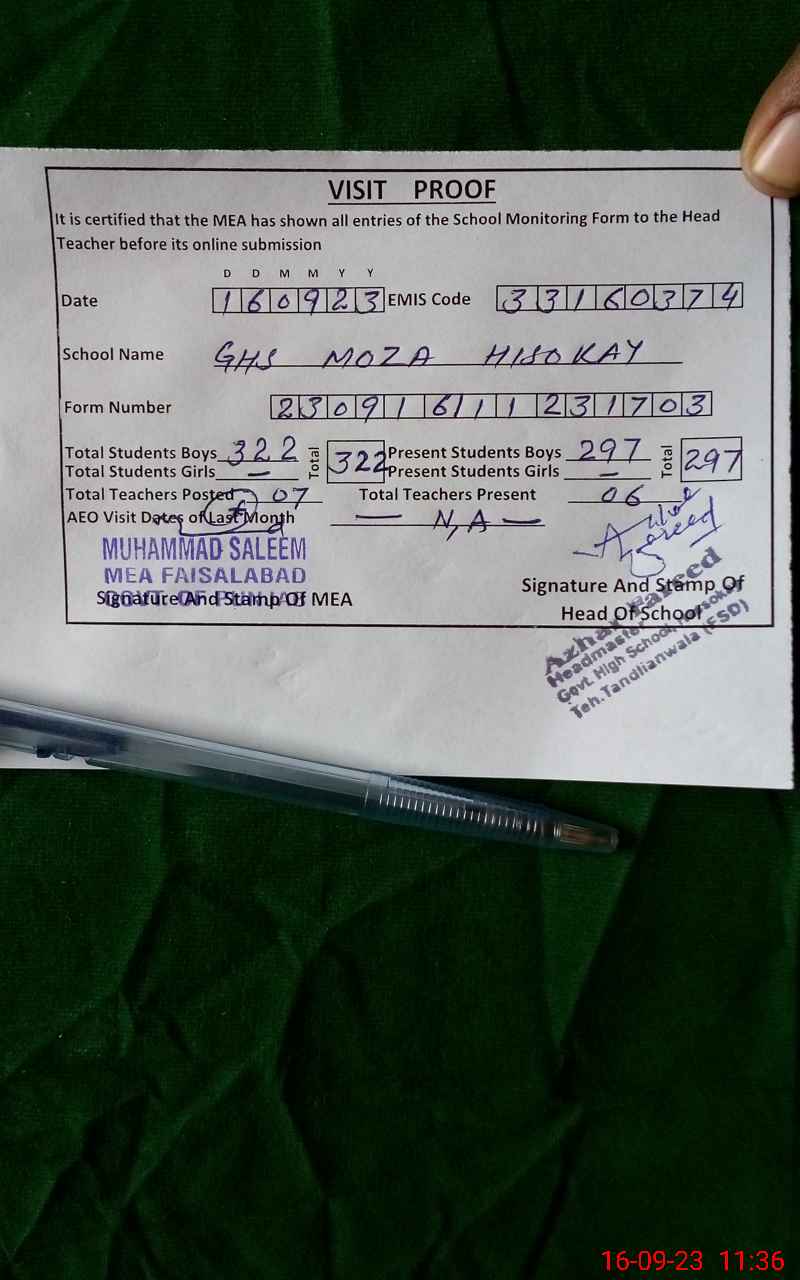 VISIT PROOF
It is certified that the MEA has shown all entries of the School Monitoring Form to the Head
Teacher before its online submission
D D M M Y Y
Date 160923 EMIS Code 33160374
School Name GHS MOZA HISOKAY
Form Number 230916111231703
Total Students Boys 322 Total 322 Present Students Boys 297 Total 297
Total Students Girls — Present Students Girls —
Total Teachers Posted 07 Total Teachers Present 06
AEO Visit Dates of Last Month — N,A —
MUHAMMAD SALEEM
MEA FAISALABAD
GOVT. OF PUNJAB
Signature And Stamp Of MEA
Signature And Stamp Of
Head Of School
Azhar Fareed
Headmaster
Govt. High School, Hisokay
Teh.Tandlianwala (FSD)
16-09-23 11:36